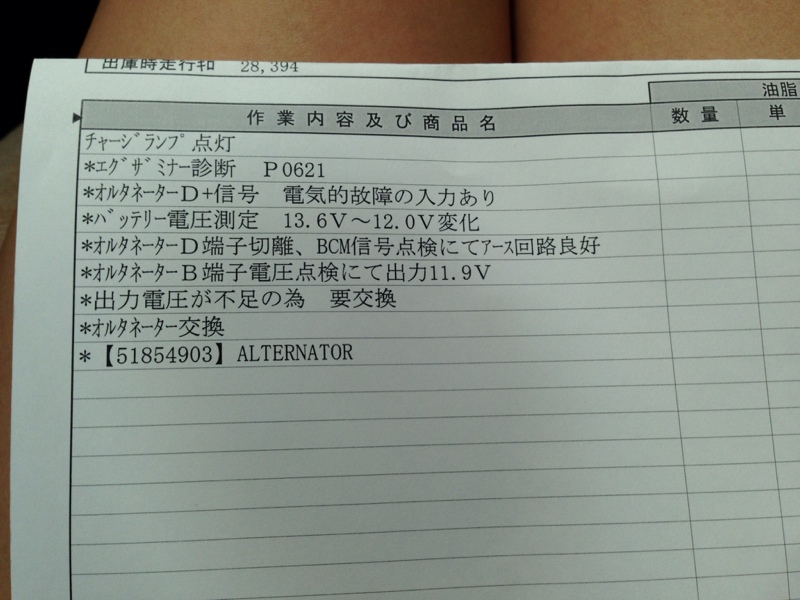 出庫時走行粁 28,394
油脂
作業内容及び商品名 数量 単
ﾁｬｰｼﾞﾗﾝﾌﾟ点灯
*ｴｸﾞｻﾞﾐﾅｰ診断 P0621
*ｵﾙﾀﾈｰﾀｰD+信号 電気的故障の入力あり
*ﾊﾞｯﾃﾘｰ電圧測定 13.6V～12.0V変化
*ｵﾙﾀﾈｰﾀｰD端子切離、BCM信号点検にてｱｰｽ回路良好
*ｵﾙﾀﾈｰﾀｰB端子電圧点検にて出力11.9V
*出力電圧が不足の為 要交換
*ｵﾙﾀﾈｰﾀｰ交換
*【51854903】ALTERNATOR